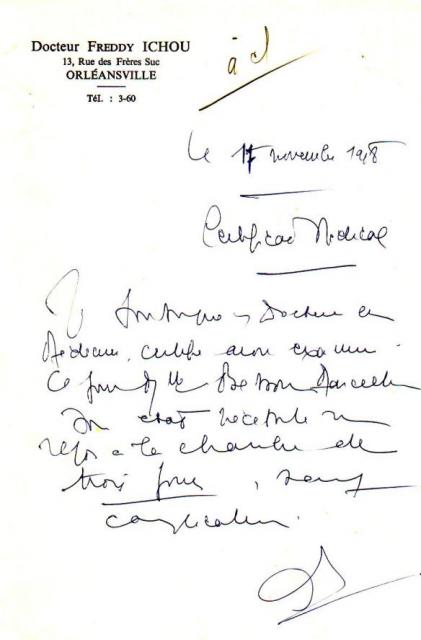 Docteur FREDDY ICHOU
13, Rue des Frères Suc
ORLÉANSVILLE
Tél. : 3-60
le 17 novembre 1958
Certificat Médical
Je soussigné, Docteur en
Médecine, certifie avoir examiné
ce jour Melle Marcelle
Son état nécessite un
repos à la chambre de
trois jours, sauf
complication.